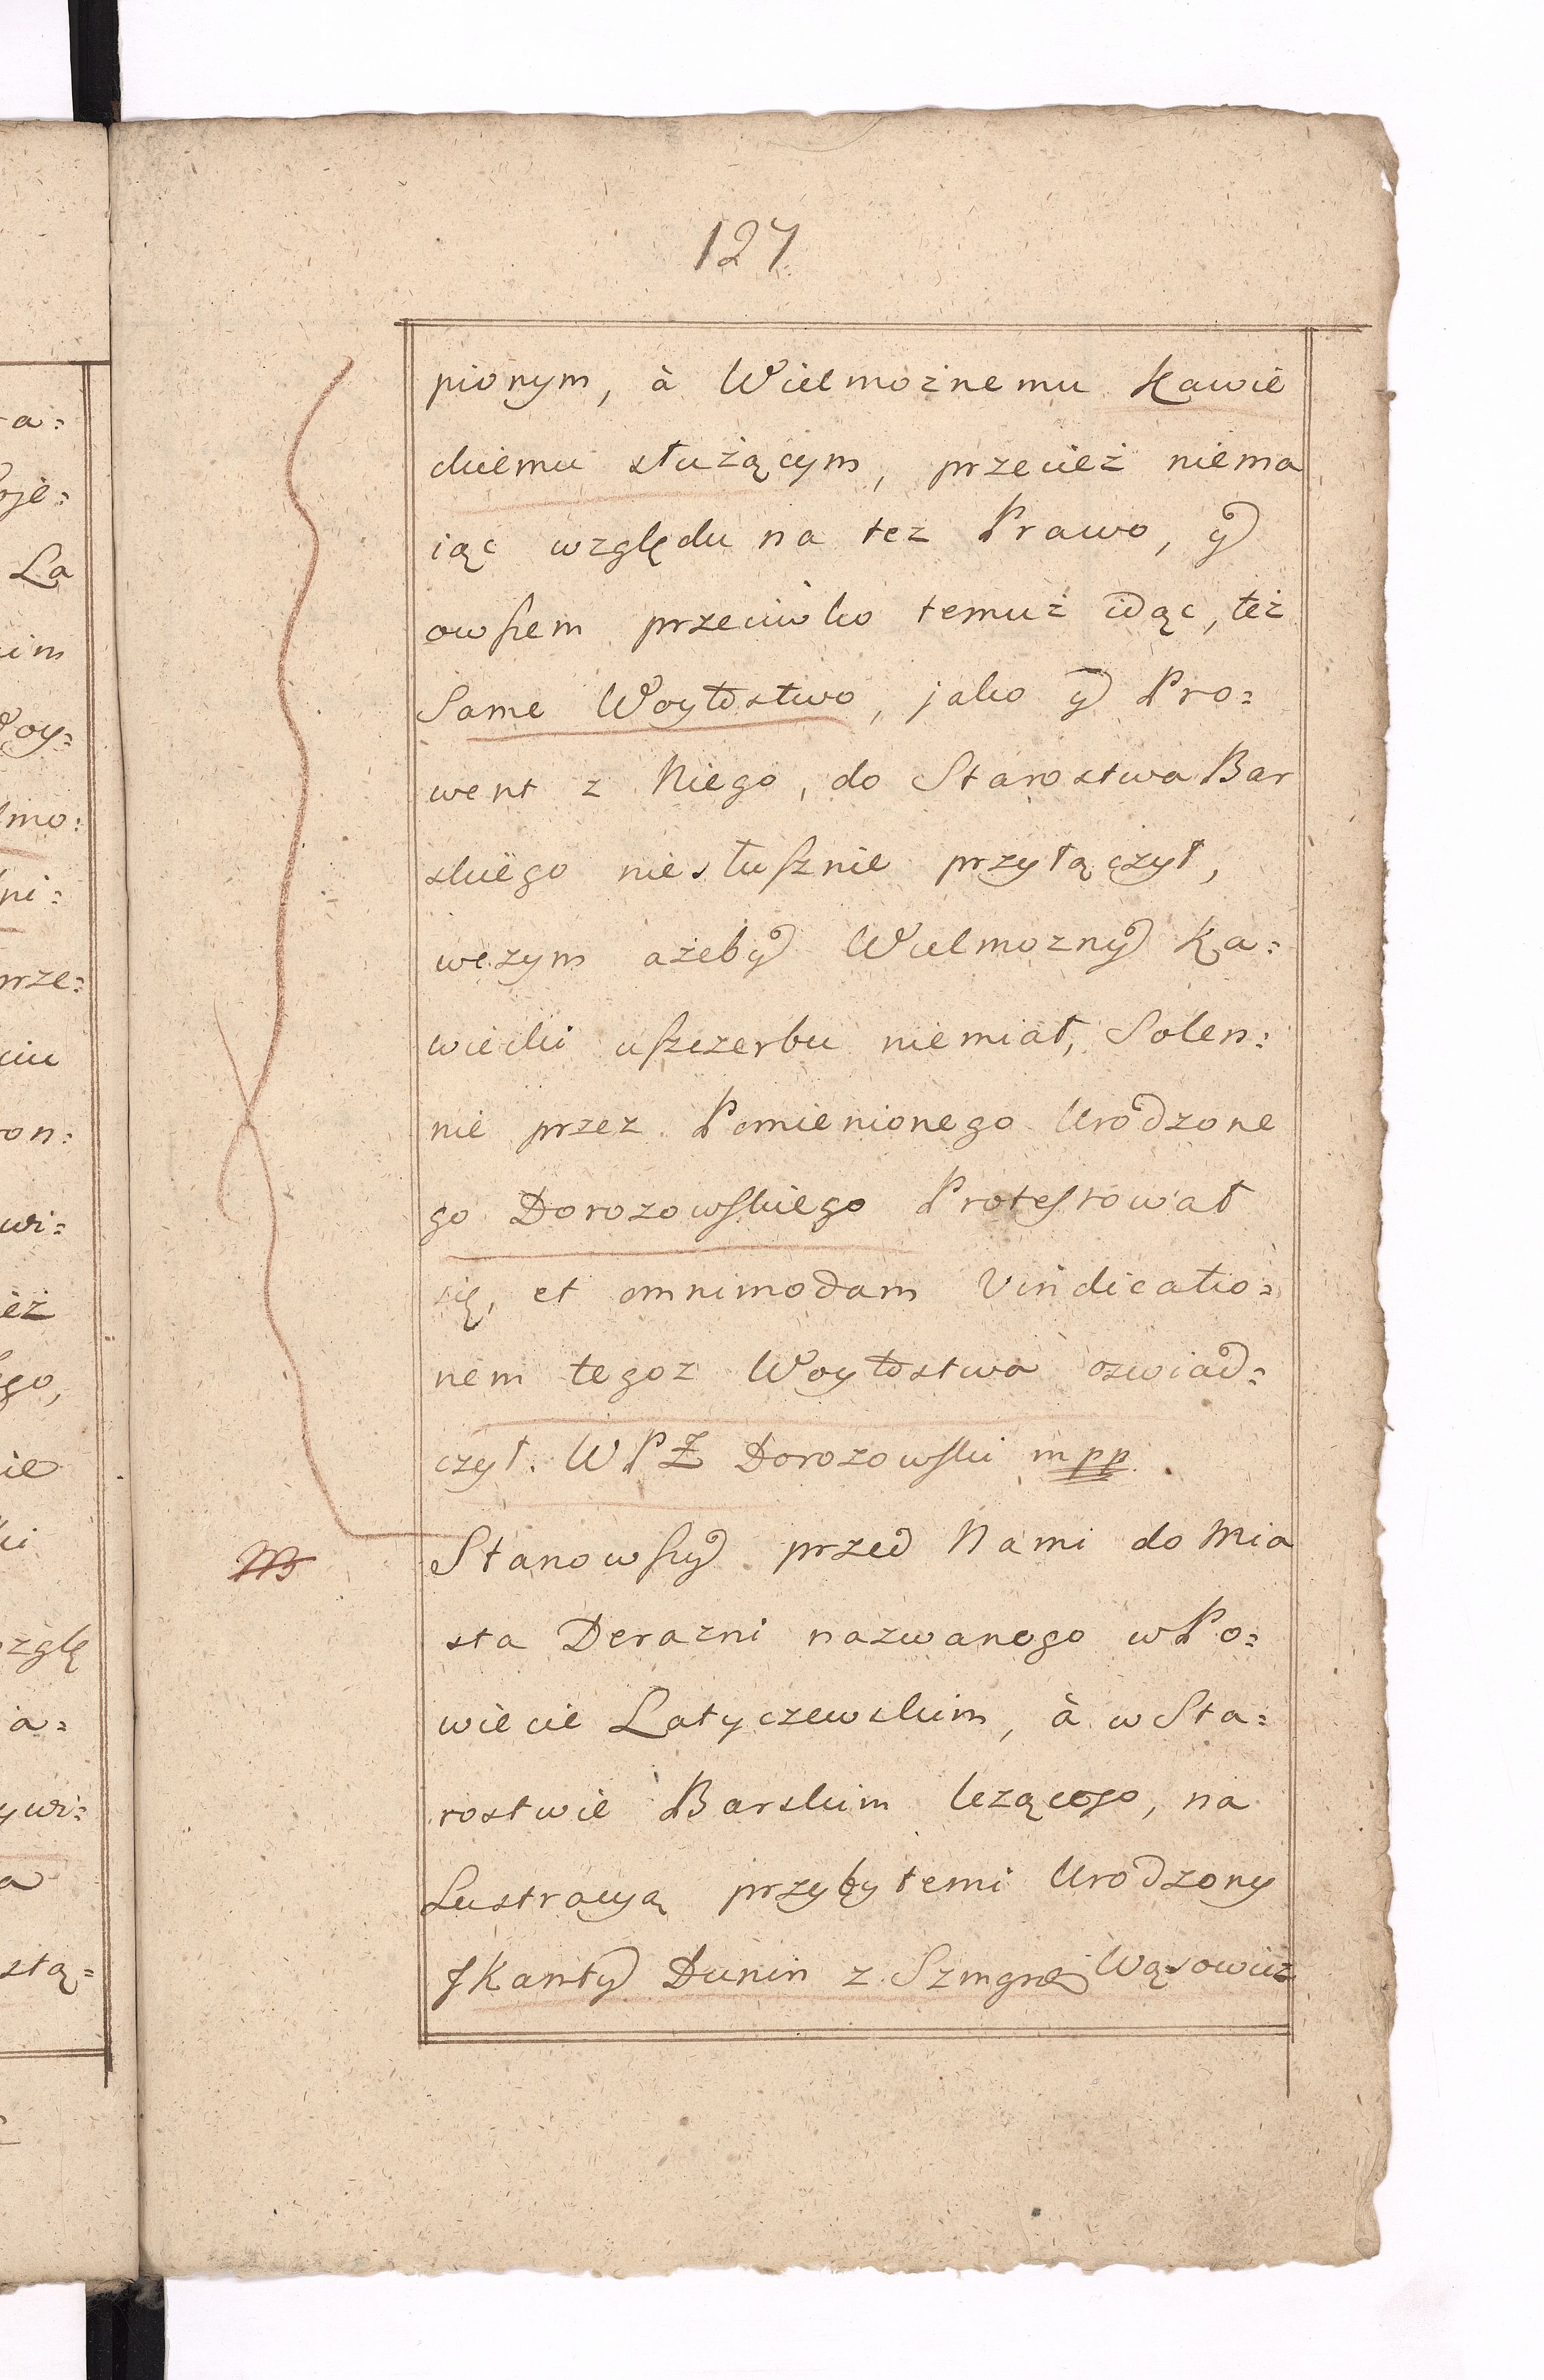 127
pionym, à Wielmożnemu Kawie
ckiemu służącym, przecież niema
iąc względu na tez Prawo, y
owſzem przeciwko temuż idąc, też
Same Woytostwo, jako y Pro=
went z Niego, do Starostwa Bar
skiego niesłuſznie przyłączył,
wczym ażeby Wielmozny Ka=
wiecki uſzczerbu niemiał, Solen=
nie przez Pomienionego Urodzone
go Dorozowſkiego Proteſtował
się, et omnimodam Vindicatio=
nem tegoz Woytostwa oswiad=
czył. WPZ Dorozowſki mpp.
Stanowſzy przed Nami do Mia
sta Derazni nazwanego wPo=
wiecie Latyczewskim, à w Sta=
rostwie Barskim lezącego, na
Lustracyą przybyłemi Urodzony
JKanty Dunin z Szmgrie Wąsowicz
a=
oje=
La
im
oy=
mo=
ni=
rze=
ciu
ron=
wi=
ież
ego,
ie
ki
zglę
ia=
ywi=
a
stą=